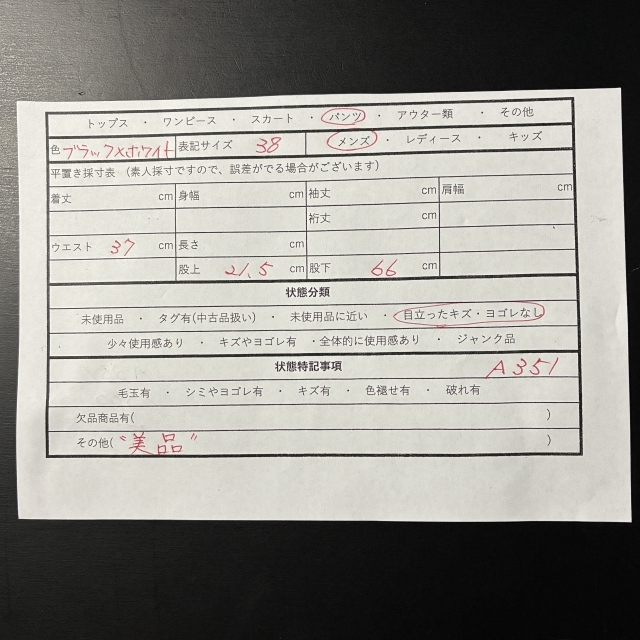 トップス ・ ワンピース ・ スカート ・ パンツ ・ アウター類 ・ その他
色 ブラック×ホワイト 表記サイズ 38 メンズ ・ レディース ・ キッズ
平置き採寸表 (素人採寸ですので、誤差がでる場合がございます)
着丈 cm 身幅 cm 袖丈 cm 肩幅 cm
裄丈 cm
ウエスト 37 cm 長さ cm
股上 21.5 cm 股下 66 cm
状態分類
未使用品 ・ タグ有(中古品扱い) ・ 未使用品に近い ・ 目立ったキズ・ヨゴレなし
少々使用感あり ・ キズやヨゴレ有 ・全体的に使用感あり ・ ジャンク品
状態特記事項 A351
毛玉有 ・ シミやヨゴレ有 ・ キズ有 ・ 色褪せ有 ・ 破れ有
欠品商品有( )
その他("美品" )